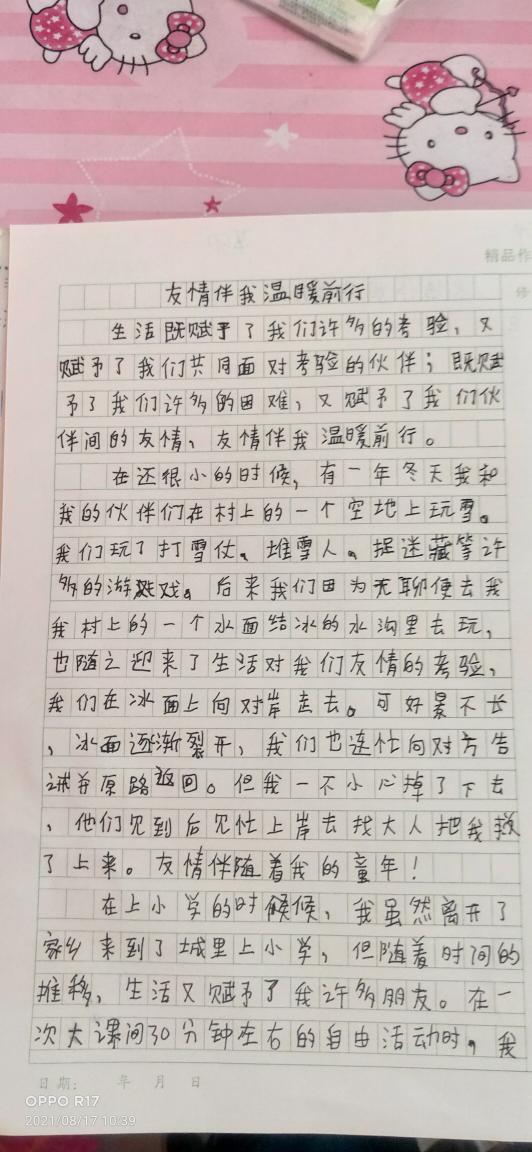 精品作
友情伴我温暖前行
生活既赋予了我们许多的考验，又
赋予了我们共同面对考验的伙伴；既赋
予了我们许多的困难，又赋予了我们伙
伴间的友情、友情伴我温暖前行。
在还很小的时候，有一年冬天我和
我的伙伴们在村上的一个空地上玩雪。
我们玩了打雪仗、堆雪人、捉迷藏等许
多的游戏。后来我们因为无聊便去我
我村上的一个水面结冰的水沟里去玩，
也随之迎来了生活对我们友情的考验，
我们在冰面上向对岸走去。可好景不长
，冰面逐渐裂开，我们也连忙向对方告
诫并原路返回。但我一不小心掉了下去
，他们见到后见忙上岸去找大人把我救
了上来。友情伴随着我的童年！
在上小学的时候候，我虽然离开了
家乡来到了城里上小学，但随着时间的
推移，生活又赋予了我许多朋友。在一
次大课间30分钟左右的自由活动时，我
日期： 年 月 日
OPPO R17
2021/08/17 10:39